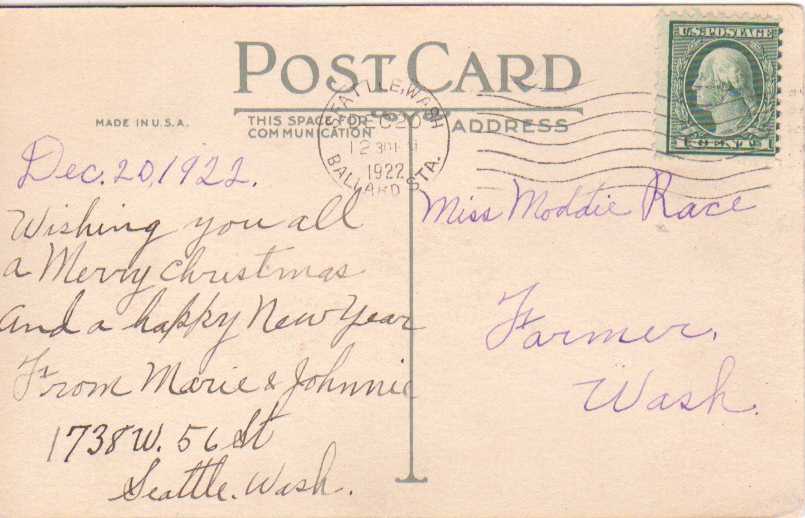 POST CARD
MADE IN U.S.A.
THIS SPACE FOR
COMMUNICATION
ADDRESS
SEATTLE, WASH
DEC 20
12 30 PM
1922
BALLARD STA.
U.S. POSTAGE
1 CENTS 1
Dec. 20, 1922.
Wishing you all
a Merry Christmas
and a happy New Year
From Marie & Johnnie
1738 W. 56 St
Seattle. Wash.
Miss Moddie Race
Farmer,
Wash.